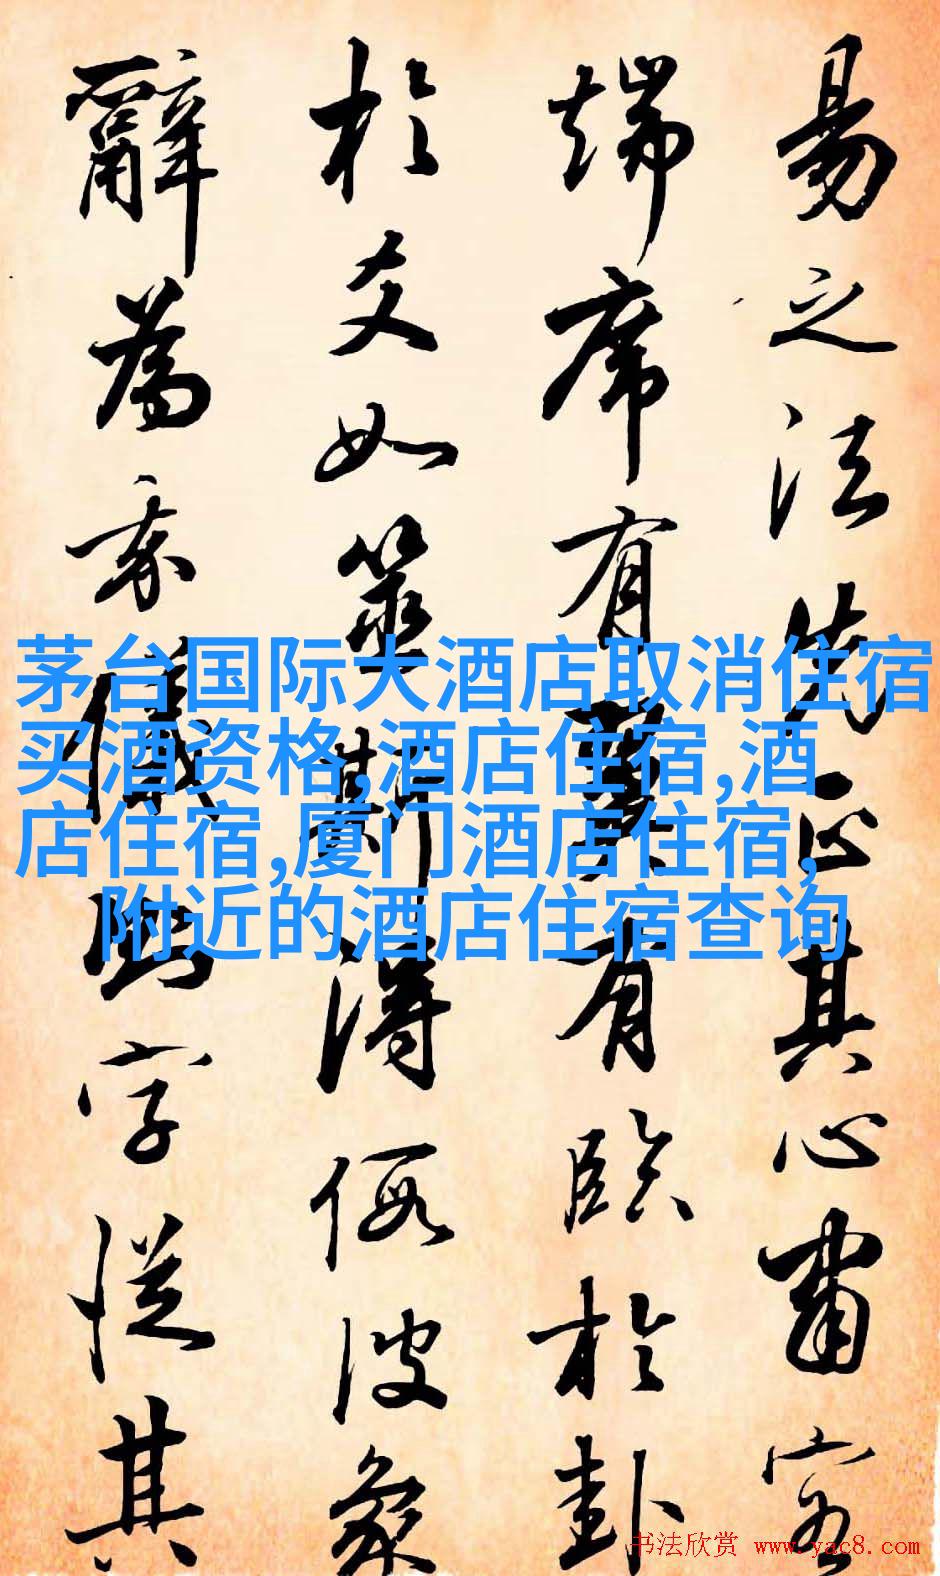 易之法先正其心肅容
端席有翼有臨於卦
於爻如筮斯得假彼象
辭為我儀則字從其
茅台国际大酒店取消住宿
买酒资格,酒店住宿,酒
店住宿,厦门酒店住宿,
附近的酒店住宿查询
书法欣赏 www.yac8.com